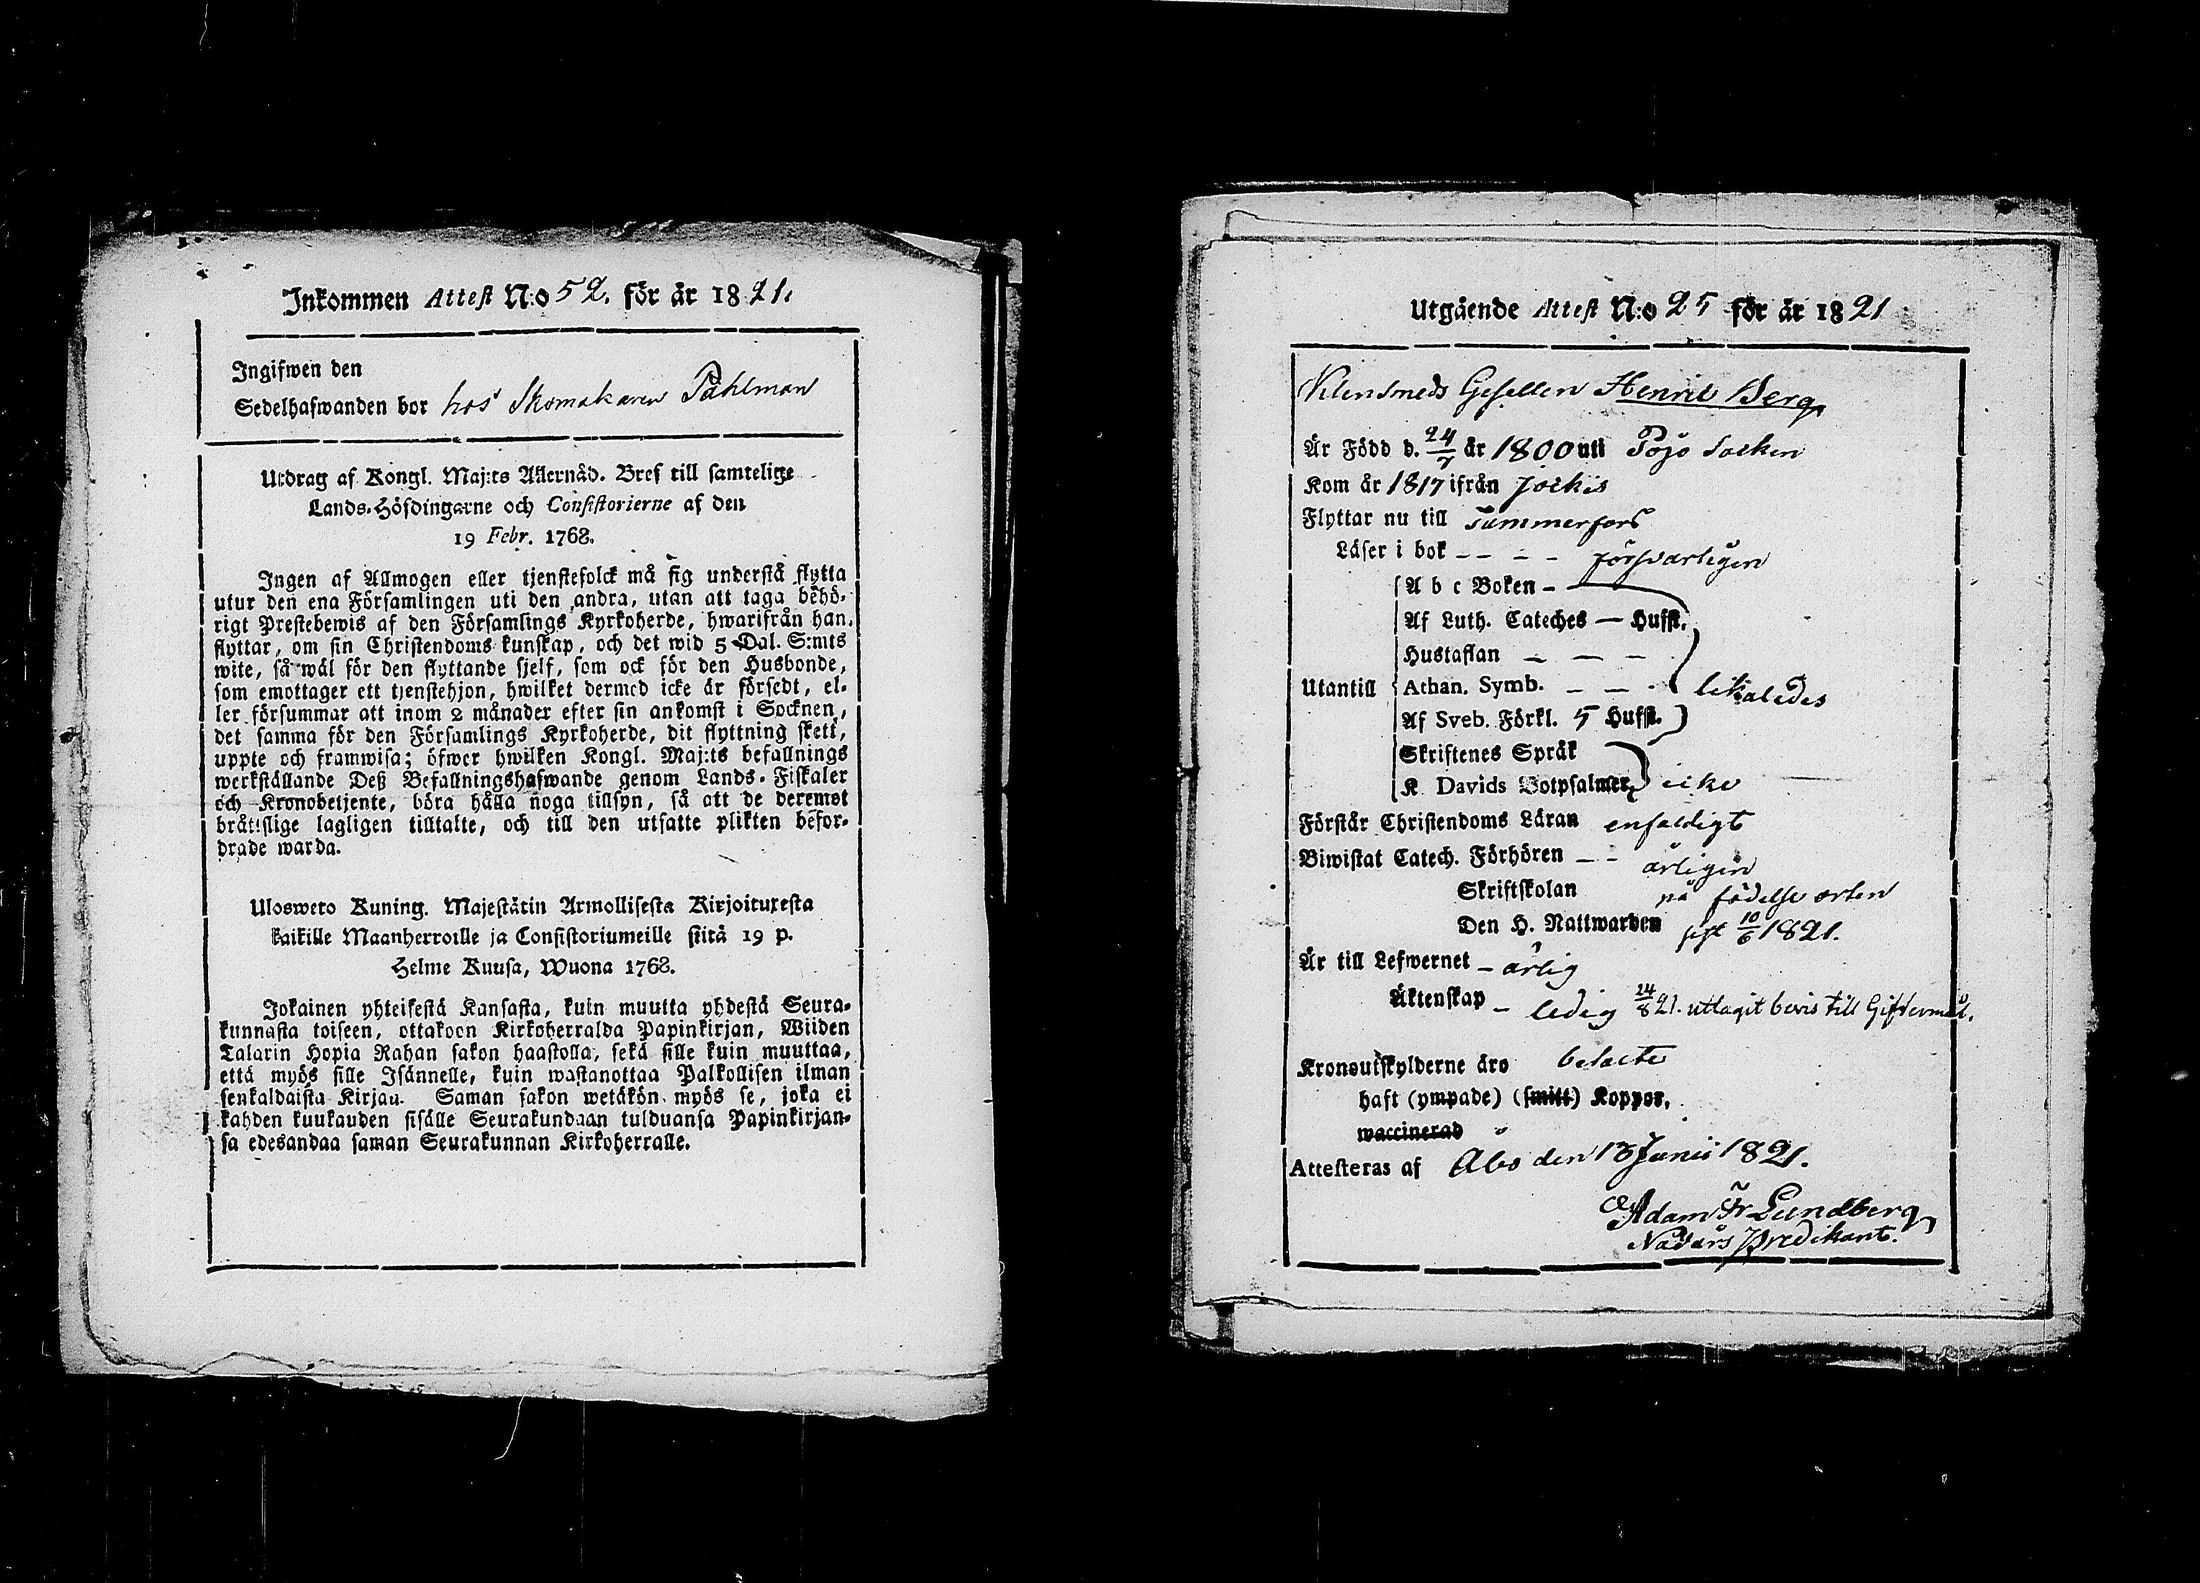 Inkommen Attest N:o 52. för år 1821.
Ingifwen den
Sedelhafwanden bor hos Skomakaren Påhlman
Utdrag af Kongl. Maj:ts Allernåd. Bref till samtelige
Lands-Höfdingarne och Consistorierne af den
19 Febr. 1768.
Ingen af Allmogen eller tjenstefolck må sig understå flytta
utur den ena Församlingen uti den andra, utan att taga behö-
rigt Prestebewis af den Församlings Kyrkoherde, hwarifrån han
flyttar, om sin Christendoms kunskap, och det wid 5 Dal. S:mts
wite, så wäl för den flyttande sjelf, som ock för den Husbonde,
som emottager ett tjenstehjon, hwilket dermed icke är försedt, el-
ler försummar att inom 2 månader efter sin ankomst i Socknen,
det samma för den Församlings Kyrkoherde, dit flyttning skett,
uppte och framwisa; öfwer hwilken Kongl. Maj:ts befallnings
werkställande Deß Befallningshafwande genom Lands-Fiskaler
och Kronobetjente, böra hålla noga tillsyn, så att de deremot
bråttslige lagligen tilltalte, och till den utsatte plikten befor-
drade warda.
Ulosweto Kuning. Majestätin Armollisesta Kirjoituxesta
kaikille Maanherroille ja Consistoriumeille siitä 19 p.
Helme Kuusa, Wuona 1768.
Jokainen yhteisestä Kansasta, kuin muutta yhdestä Seura-
kunnasta toiseen, ottakoon Kirkoherralda Papinkirjan, Wiiden
Talarin Hopia Rahan sakon haastolla, sekä sille kuin muuttaa,
että myös sille Isännelle, kuin wastanottaa Palkollisen ilman
senkaldaista Kirjau. Saman sakon wetäkön myös se, joka ei
kahden kuukauden sisälle Seurakundaan tulduansa Papinkirjan-
sa edesandaa saman Seurakunnan Kirkoherralle.
Utgående Attest N:o 25 för år 1821
Klensmeds Gesellen Henric Berg
Är Född d. 24/7 år 1800 uti Pojo Socken
Kom år 1817 ifrån Jockis
Flyttar nu till Tammerfors
Läser i bok - - - - försvarligen
A b c Boken -
Af Luth. Cateches — Hufst.
Hustaflan - - -
Utantill Athan. Symb. - - - likaledes
Af Sveb. Förkl. 5 Hufst.
Skriftenes Språk
K Davids Botpsalmer, icke
Förstår Christendoms Läran enfaldigt
Biwistat Catech. Förhören - - årligen
Skriftskolan på födelse orten
Den H. Nattwarden sist 10/6 1821.
Är till Lefwernet - ärlig
Äktenskap - ledig 24/8 21. uttagit bevis till Giftermål.
Kronoutskylderne äro betalte
haft (ympade) (smitt) Koppor,
waccinerad
Attesteras af Åbo den 13 Junii 1821.
Adam Fr Lundberg
Nådårs Predikant.